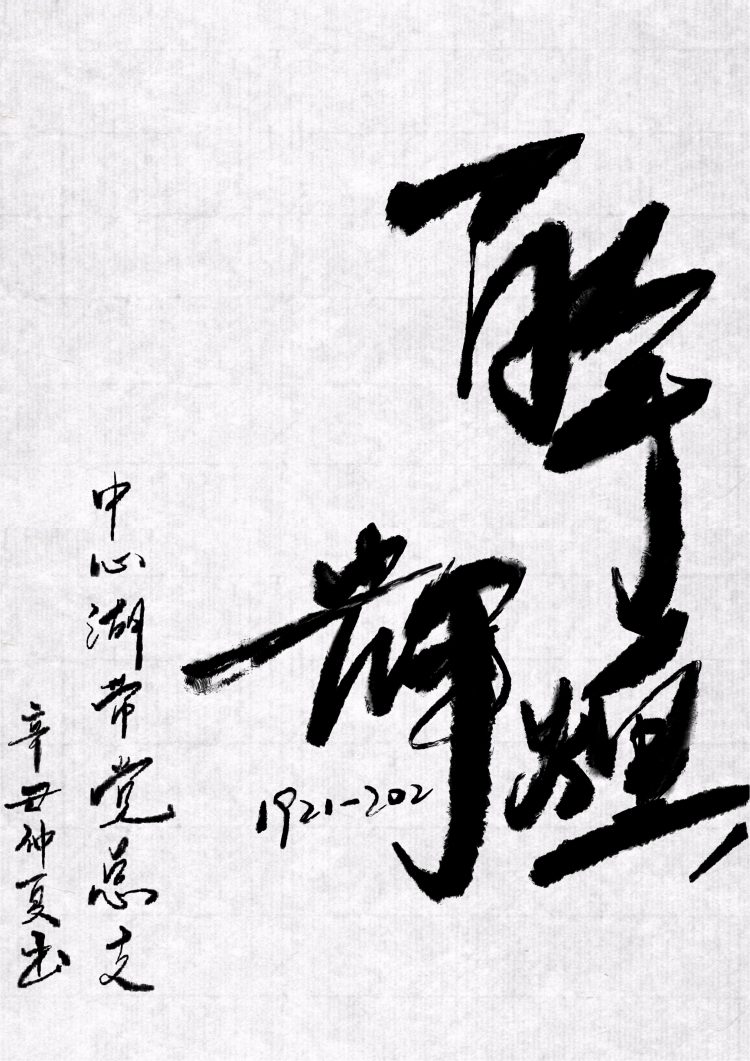 百年
辉煌
1921-202
中心湖带党总支
辛丑仲夏